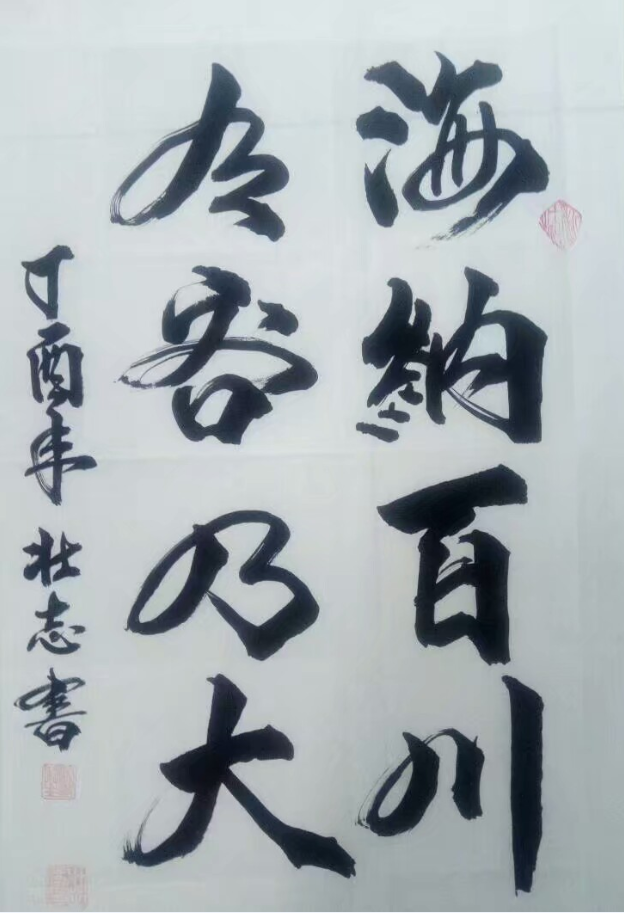 海纳百川
有容乃大
丁酉年 壮志書